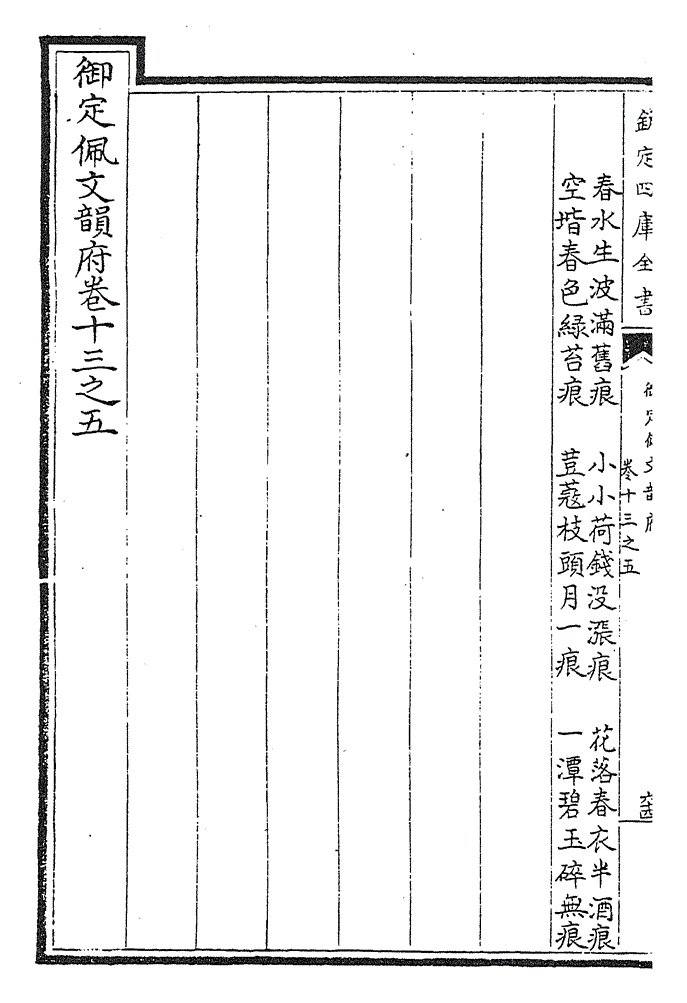 欽定四庫全書
御定佩文韻府
卷十三之五
春水生波滿舊痕 小小荷錢没漲痕 花落春衣半酒痕
空堦春色綠苔痕 荳蔻枝頭月一痕 一潭碧玉碎無痕
御定佩文韻府卷十三之五